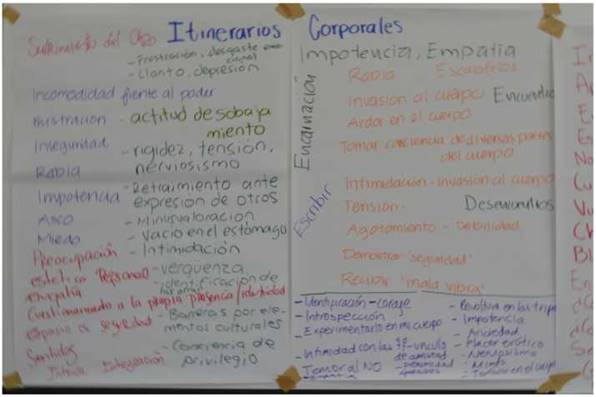 Itinerarios Corporales
Sufrimiento del Otro
- Frustración, desgaste emocional
- Llanto, depresión
Incomodidad frente al poder
Frustración - actitud de sobajamiento
Inseguridad
- rigidez, tensión,
nerviosismo
Rabia
Impotencia - Retraimiento ante
expresión de otros
Asco - Minusvaloración
Miedo - Vacío en el estómago
Preocupación - Intimidación
estética Personal - vergüenza
empatía - identificación de
Cuestionamiento a la propia presencia / identidad
espacio de seguridad - Barreras por ele-
mentos culturales
- Conciencia de
privilegio
Integración
Impotencia, Empatía
Encarnación
Escribir
Rabia Escalofríos
Invasión al cuerpo Encuentros
Ardor en el cuerpo
Tomar conciencia de diversas partes
del cuerpo
Intimidación - invasión al cuerpo
Tensión - Desencuentros
Agotamiento - Debilidad
Demostrar "seguridad"
Recibir "mala vibra"
- Identificación - coraje
- Introspección
- Experimentarlo en mi cuerpo
- Intimidad con las vínculo
de amistad
- Temor al NO
- Revoltura en las tripas
- Impotencia
- Ansiedad
- Placer erótico
- Nerviosismo
- Miedo
- Temblor en el cuerpo